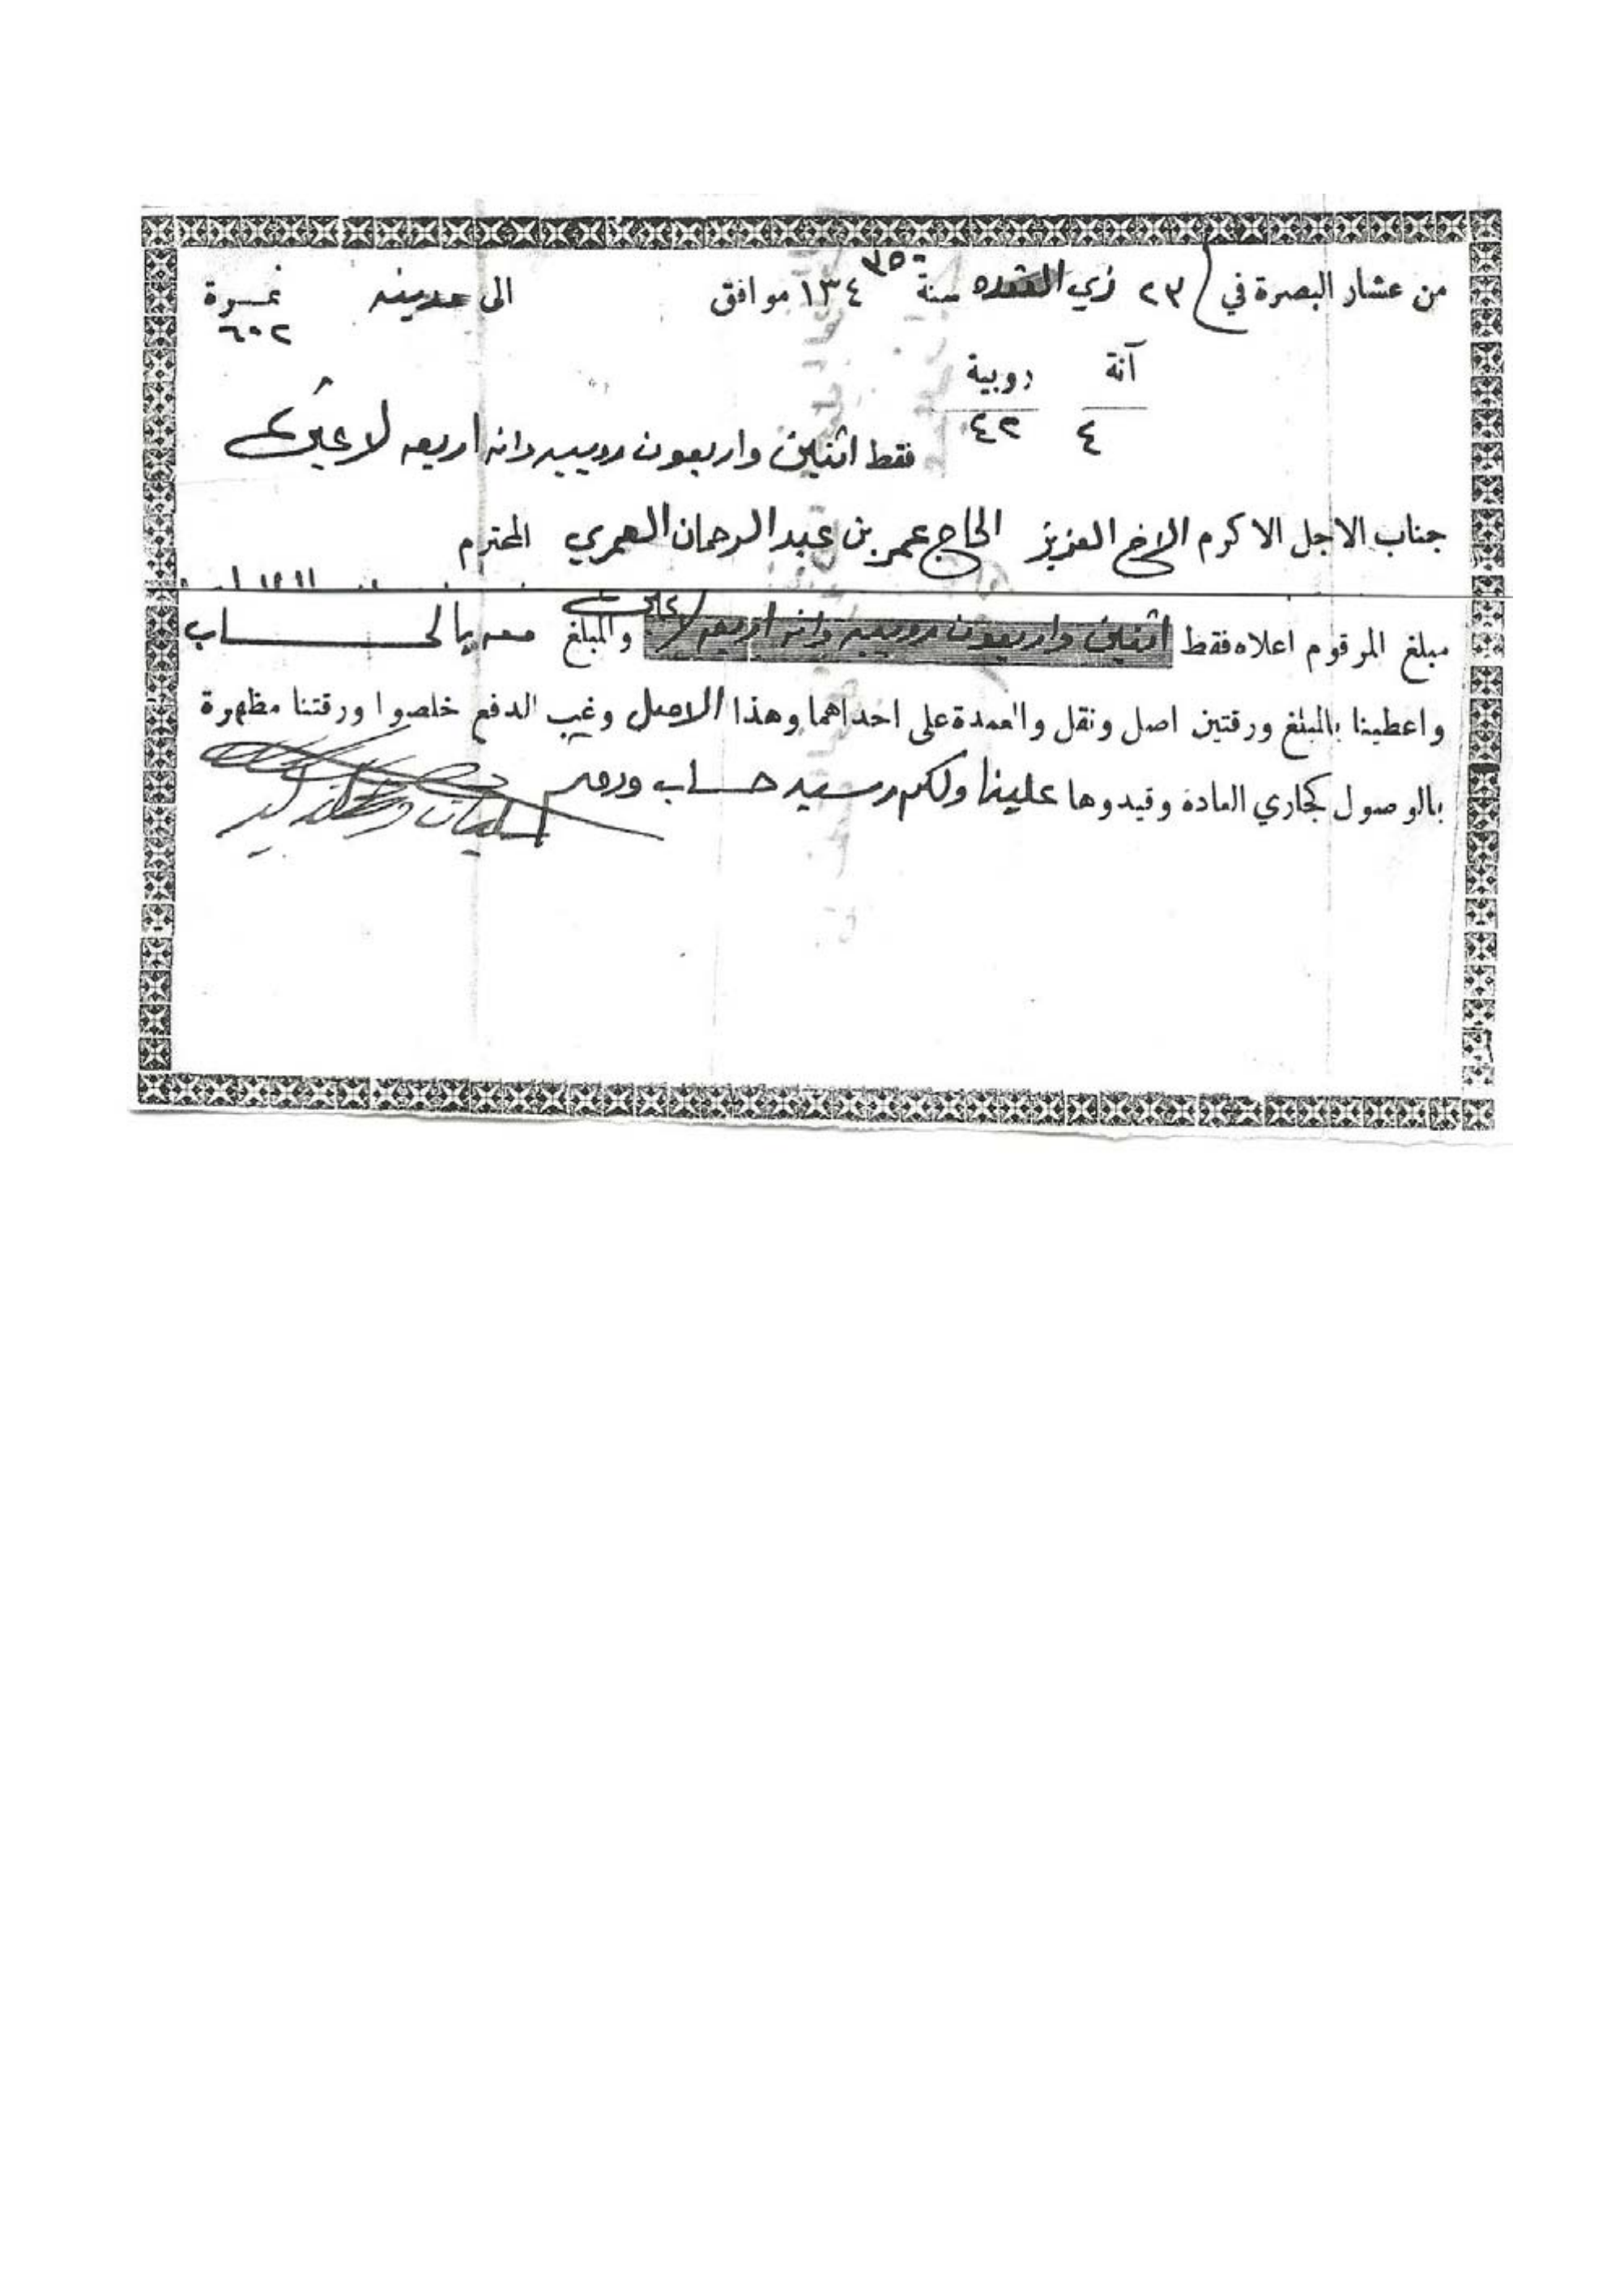 من عشار البصرة في ٢٣ ذي القعده سنة ١٣٤ ٣٥ موافق الى مدينه نمرة
٦٠٢
آنة روبية
٤ ٤٢
فقط اثنين واربعون روبيه وانه اربعه لا غير
جناب الاجل الاكرم الاخ العزيز الحاج عمر بن عبد الرحمان العمري المحترم
مبلغ المرقوم اعلاه فقط اثنين واربعون روبيه وانه اربعه لا غير والمبلغ معه بالحساب
واعطينا بالمبلغ ورقتين اصل ونقل والعمدة على احداهما وهذا الاصل وغب الدفع خلصوا ورقتنا مظهرة
بالوصول كجاري العادة وقيدوها علينا ولكم رسيد حساب ودمتم